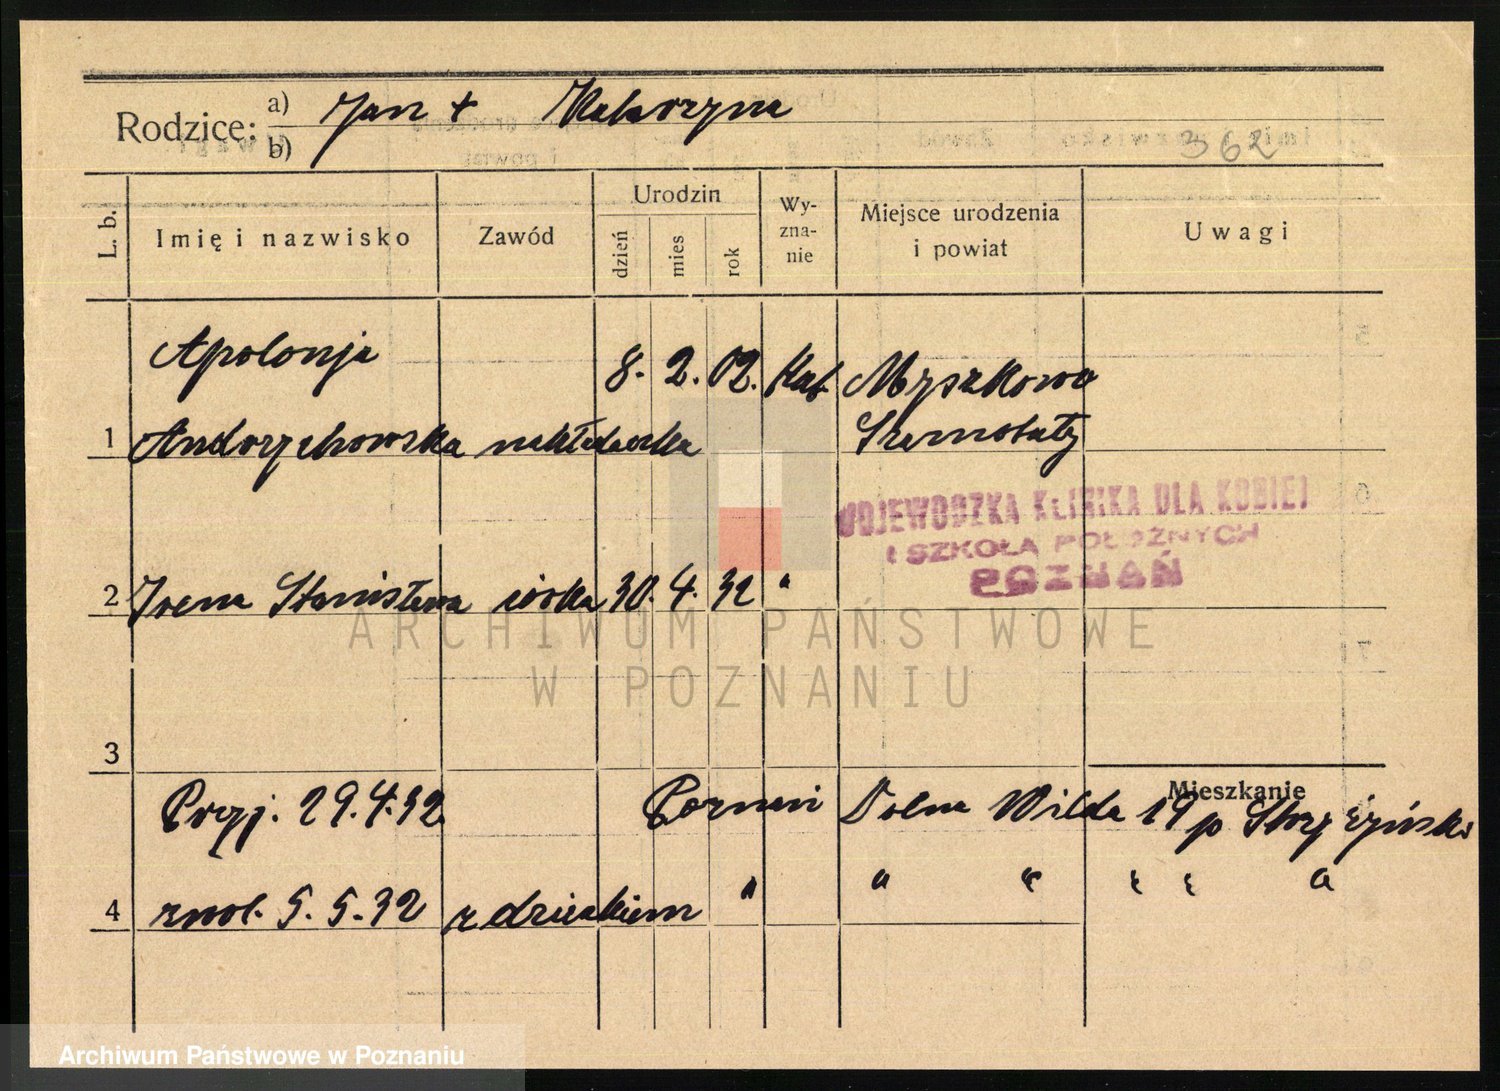 Rodzice: a) Jan + Katarzyna
b)
362
L. b. Imię i nazwisko Zawód Urodzin dzień mies rok Wy-zna-nie Miejsce urodzenia i powiat Uwagi
Apolonja 8. 2. 02. Kat. Myszkowo
1 Andrzychowska nakładaczka Szamotuły
WOJEWODZKA KLINIKA DLA KOBIET
I SZKOŁA POŁOŻNYCH
POZNAŃ
2 Irena Stanisława córka 30. 4. 32 "
ARCHIWUM PAŃSTWOWE
W POZNANIU
3
Mieszkanie
Przyj. 29.4.32 Poznań Dolna Wilda 19 p Strzyżyńska
4 zwol. 5. 5. 32 z dzieckiem " " " " " "
Archiwum Państwowe w Poznaniu